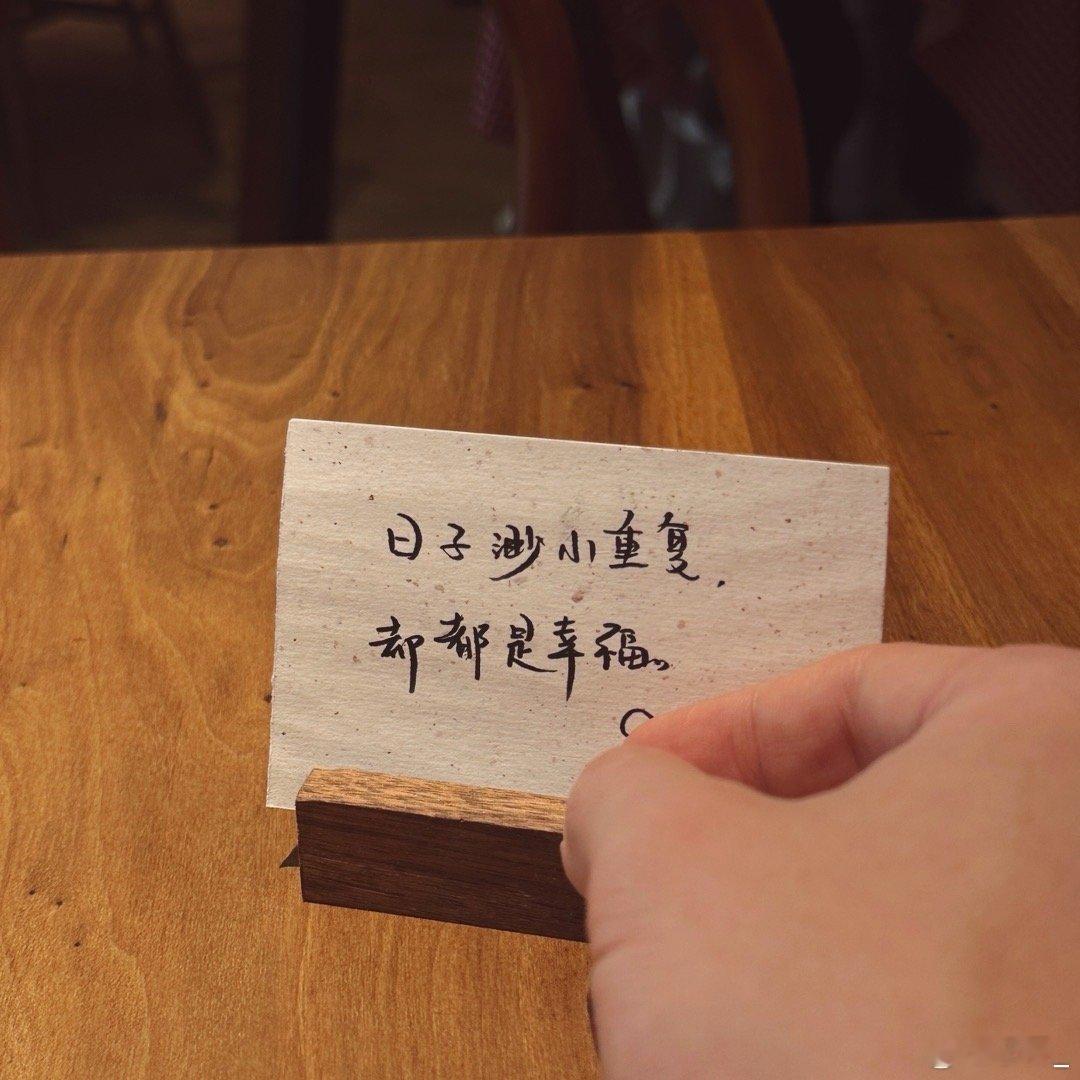 日子渺小重复,
却都是幸福。